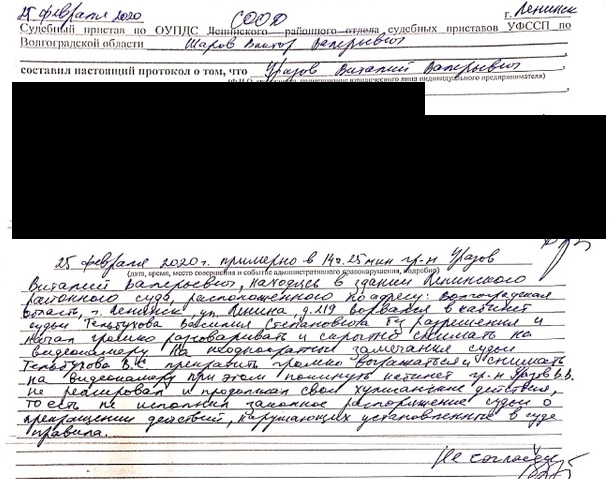 25 февраля 2020 СООО г. Ленинск
Судебный пристав по ОУПДС Ленинского районного отдела судебных приставов УФССП по
Волгоградской области Шаров Виктор Валерьевич
составил настоящий протокол о том, что Уразов Виталий Валерьевич
25 февраля 2020 г. примерно в 14 ч. 25 мин гр-н Уразов
(дата, время, место совершения и событие административного правонарушения, подробно)
Виталий Валерьевич, находясь в здании Ленинского
районного суда, расположенного по адресу: Волгоградская
область, г. Ленинск, ул. Ленина, д. 219 ворвался в кабинет
судьи Тельбухова Василия Степановича без разрешения и
начал громко разговаривать и скрытно снимать на
видеокамеру. На неоднократные замечания судьи
Тельбухова В.С. прекратить громко выражаться и снимать
на видеокамеру при этом покинуть кабинет гр-н Уразов В.В.
не реагировал и продолжал свои хулиганские действия,
то есть не исполнил законное распоряжение судьи о
прекращении действий, нарушающих установленные в суде
правила.
Не согласен